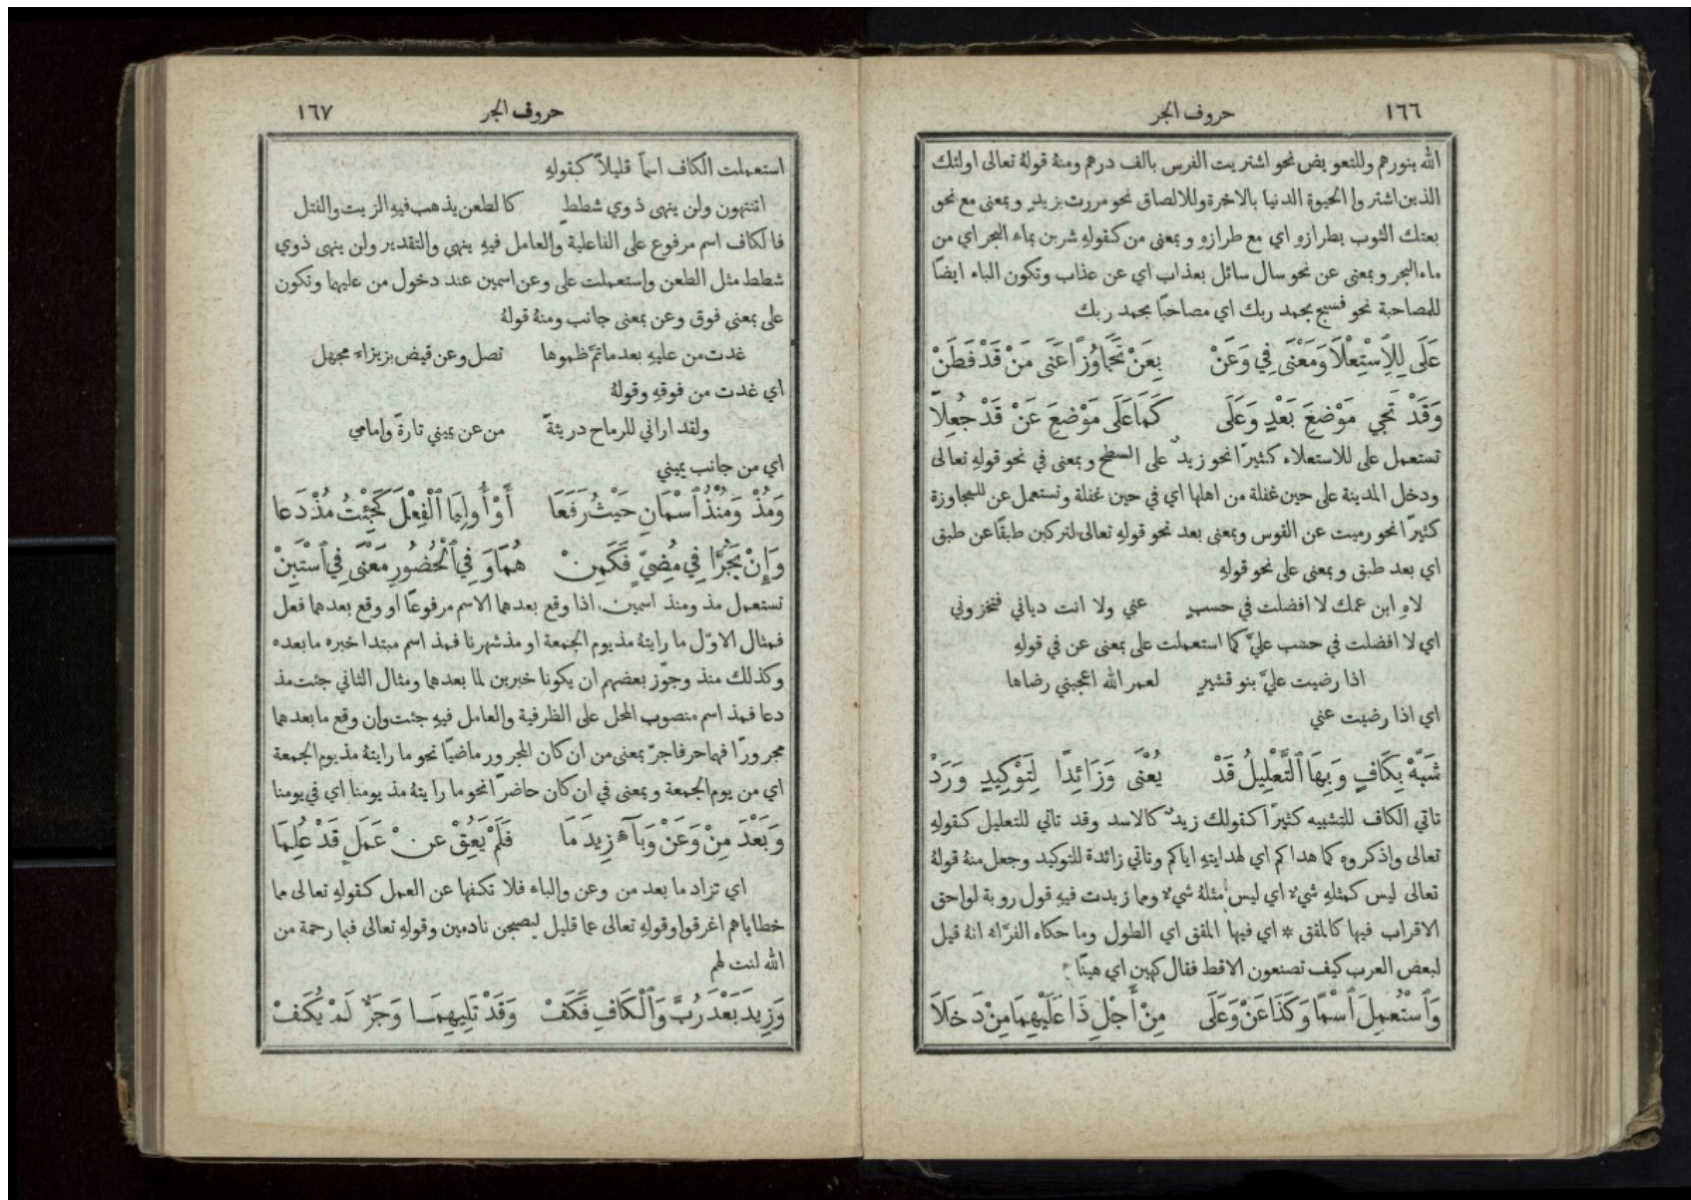 ١٦٦
حروف الجر
الله بنورهم وللتعويض نحو اشتريت الفرس بالف درهم ومنهُ قولهُ تعالى اولئك
الذين اشتروا الحيوة الدنيا بالاخرة وللالصاق نحو مررت بزيدٍ وبمعنى مع نحو
بعتك الثوب بطرازهِ اي مع طرازهِ وبمعنى من كقولهِ شربن بماء البحر اي من
ماء البحر وبمعنى عن نحو سال سائل بعذاب اي عن عذاب وتكون الباء ايضًا
للمصاحبة نحو فسبح بحمد ربك اي مصاحبًا بحمد ربك
عَلَى لِلِٱسْتِعْلَا وَمَعْنَى فِي وَعَنْ بِعَنْ تَجَاوُزًا عَنَى مَنْ قَدْ فَطَنْ
وَقَدْ تَجِي مَوْضِعَ بَعْدٍ وَعَلَى كَمَا عَلَى مَوْضِعَ عَنْ قَدْ جُعِلَا
تستعمل على للاستعلاء كثيرًا نحو زيدٌ على السطح وبمعنى في نحو قولهِ تعالى
ودخل المدينة على حين غفلة من اهلها اي في حين غفلة وتستعمل عن للمجاوزة
كثيرًا نحو رميت عن القوس وبمعنى بعد نحو قولهِ تعالى لتركبن طبقًا عن طبق
اي بعد طبق وبمعنى على نحو قولهِ
لاهِ ابن عمك لا افضلت في حسبٍ عني ولا انت دياني فتخزوني
اي لا افضلت في حسب عليَّ كما استعملت على بمعنى عن في قولهِ
اذا رضيت عليَّ بنو قشيرٍ لعمر الله اعجبني رضاها
اي اذا رضيت عني
شَبِّهْ بِكَافٍ وَبِهَا ٱلتَّعْلِيلُ قَدْ يُعْنَى وَزَائِدًا لِتَوْكِيدٍ وَرَدْ
تاتي الكاف للتشبيه كثيرًا كقولك زيدٌ كالاسد وقد تاتي للتعليل كقولهِ
تعالى واذكروهُ كما هداكم اي لهدايتهِ اياكم وتاتي زائدة للتوكيد وجعل منهُ قولهُ
تعالى ليس كمثلهِ شيءٌ اي ليس مثلهُ شيءٌ ومما زيدت فيهِ قول روبة لواحق
الاقراب فيها كالمقق * اي فيها المقق اي الطول وما حكاه الفرَّاء انهُ قيل
لبعض العرب كيف تصنعون الاقط فقال كهينٍ اي هينًا
وَٱسْتُعْمِلَ ٱسْمًا وَكَذَا عَنْ وَعَلَى مِنْ أَجْلِ ذَا عَلَيْهِمَا مِنْ دَخَلَا
حروف الجر
١٦٧
استعملت الكاف اسمًا قليلًا كقولهِ
اتنتهون ولن ينهى ذوي شططٍ كالطعن يذهب فيهِ الزيت والفتل
فالكاف اسم مرفوع على الفاعلية والعامل فيهِ ينهى والتقدير ولن ينهى ذوي
شطط مثل الطعن واستعملت على وعن اسمين عند دخول من عليهما وتكون
على بمعنى فوق وعن بمعنى جانب ومنهُ قولهُ
غدت من عليهِ بعد ما تمَّ ظموها تصل وعن قيض بزيزاء مجهل
اي غدت من فوقهِ وقولهُ
ولقد اراني للرماح دريئةً من عن يميني تارةً وامامي
اي من جانب يميني
وَمُذْ وَمُنْذُ ٱسْمَانِ حَيْثُ رَفَعَا أَوْ أُولِيَا ٱلْفِعْلَ كَجِئْتُ مُذْ دَعَا
وَإِنْ يَجُرَّا فِي مُضِيٍّ فَكَمِنْ هُمَا وَفِي ٱلْحُضُورِ مَعْنَى فِي ٱسْتَبِنْ
تستعمل مذ ومنذ اسمين اذا وقع بعدهما الاسم مرفوعًا او وقع بعدهما فعل
فمثال الاوَّل ما رايتهُ مذ يوم الجمعة او مذ شهرنا فمذ اسم مبتدا خبره ما بعده
وكذلك منذ وجوَّز بعضهم ان يكونا خبرين لما بعدهما ومثال الثاني جئت مذ
دعا فمذ اسم منصوب المحل على الظرفية والعامل فيهِ جئت وان وقع ما بعدهما
مجرورًا فهما حرفا جرّ بمعنى من ان كان المجرور ماضيًا نحو ما رايتهُ مذ يوم الجمعة
اي من يوم الجمعة وبمعنى في ان كان حاضرًا نحو ما رايتهُ مذ يومنا اي في يومنا
وَبَعْدَ مِنْ وَعَنْ وَبَاءٍ زِيدَ مَا فَلَمْ يَعُقْ عَنْ عَمَلٍ قَدْ عُلِمَا
اي تزاد ما بعد من وعن والباء فلا تكفها عن العمل كقولهِ تعالى مما
خطاياهم اغرقوا وقولهِ تعالى عما قليل ليصبحن نادمين وقولهِ تعالى فبما رحمة من
الله لنت لهم
وَزِيدَ بَعْدَ رُبَّ وَٱلْكَافِ فَكَفْ وَقَدْ تَلِيهِمَا وَجَرٌّ لَمْ يُكَفْ